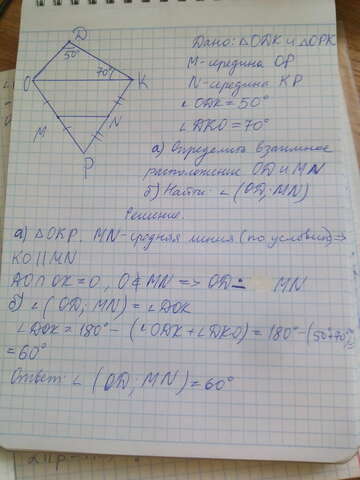 D
50°
70°
O
K
M
N
P
Дано: △ODK и △OPK
M-середина OP
N-середина KP
∠ODK = 50°
∠DKO = 70°
а) Определить взаимное
расположение OD и MN
б) Найти: ∠(OD; MN)
Решение.
а) △OKP. MN-средняя линия (по условию) ⇒
KO || MN
AO ∩ OK = O, O ∉ MN => OD ∸ MN
б) ∠(OD; MN) = ∠DOK
∠DOK = 180° - (∠ODK + ∠DKO) = 180° - (50°+70°)=
= 60°
Ответ: ∠(OD; MN) = 60°